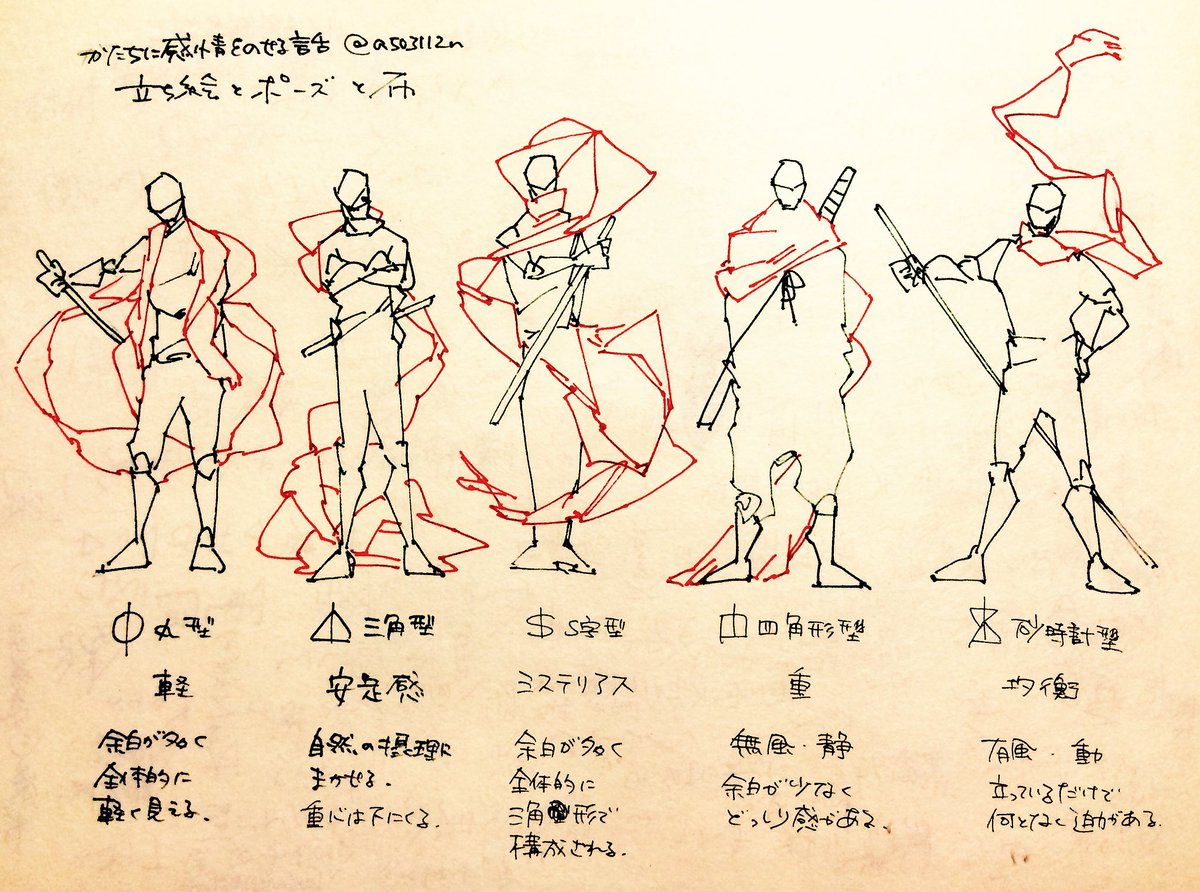 かたちに感情をのせる話 @a503112n
立ち絵とポーズと布
丸型
軽
余白が多く
全体的に
軽く見える。
三角型
安定感
自然の摂理に
まかせる。
重心は下にくる。
S字型
ミステリアス
余白が多く
全体的に
三角形で
構成される。
四角形型
重
無風・静
余白が少なく
どっしり感がある。
砂時計型
均衡
有風・動
立っているだけで
何となく迫力がある。